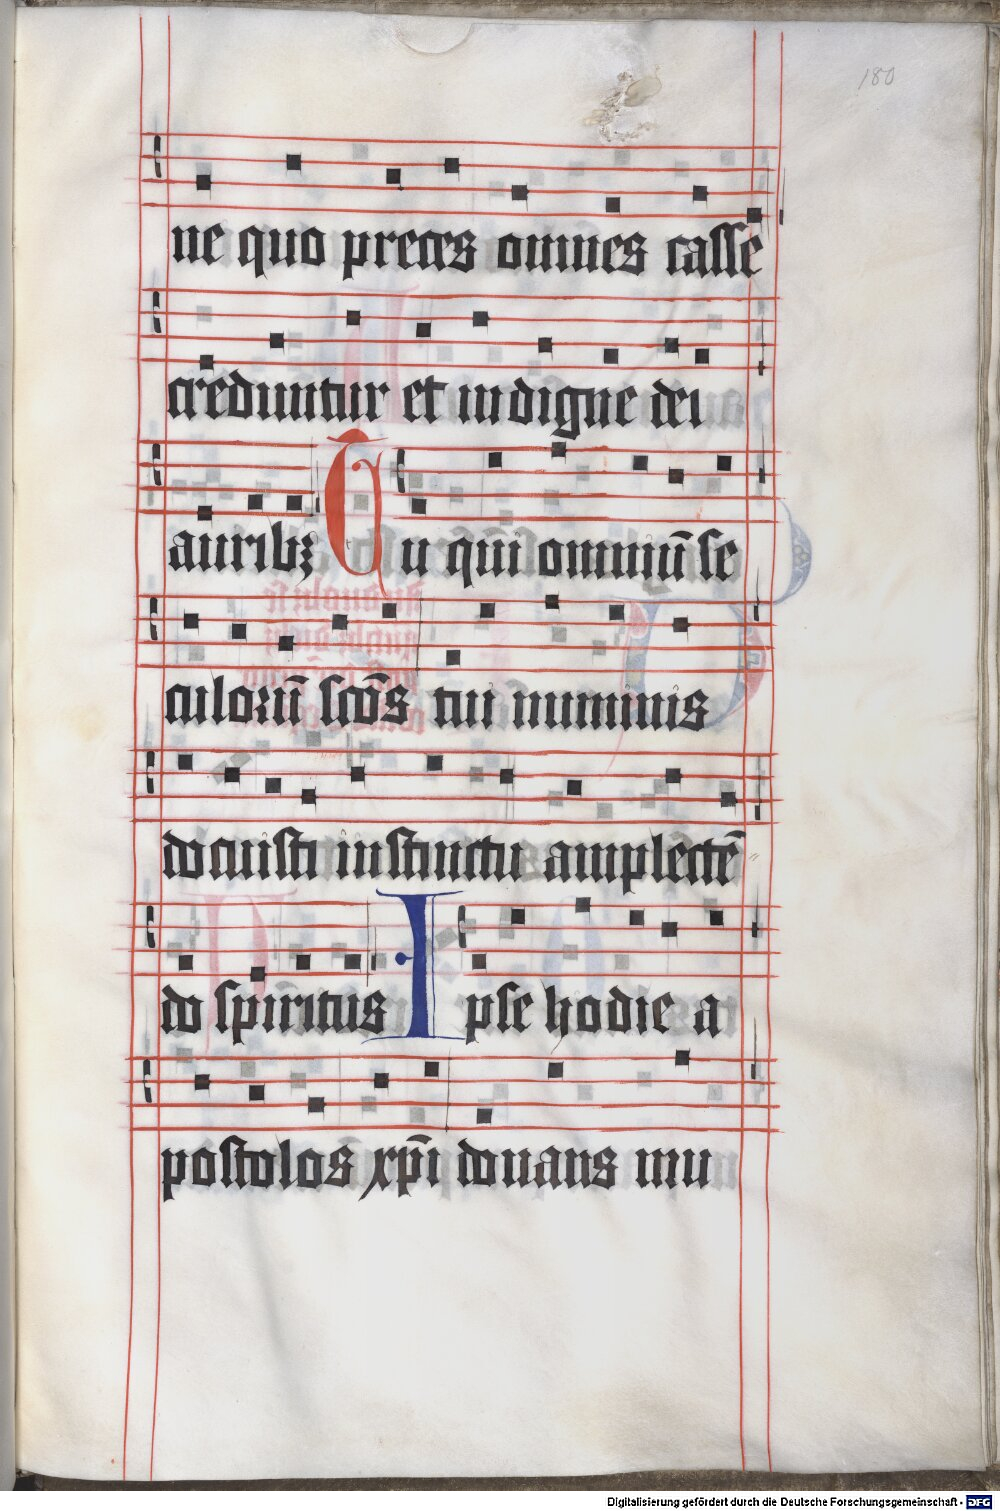 180
ne quo preces omnes casse
creduntur et indigne dei
auribꝫ Tu qui omniū se
culorū scōs tui numinis
docuisti instinctu amplectē
do spiritus Ipse hodie a
postolos xp̄i donans mu
Digitalisierung gefördert durch die Deutsche Forschungsgemeinschaft - DFG